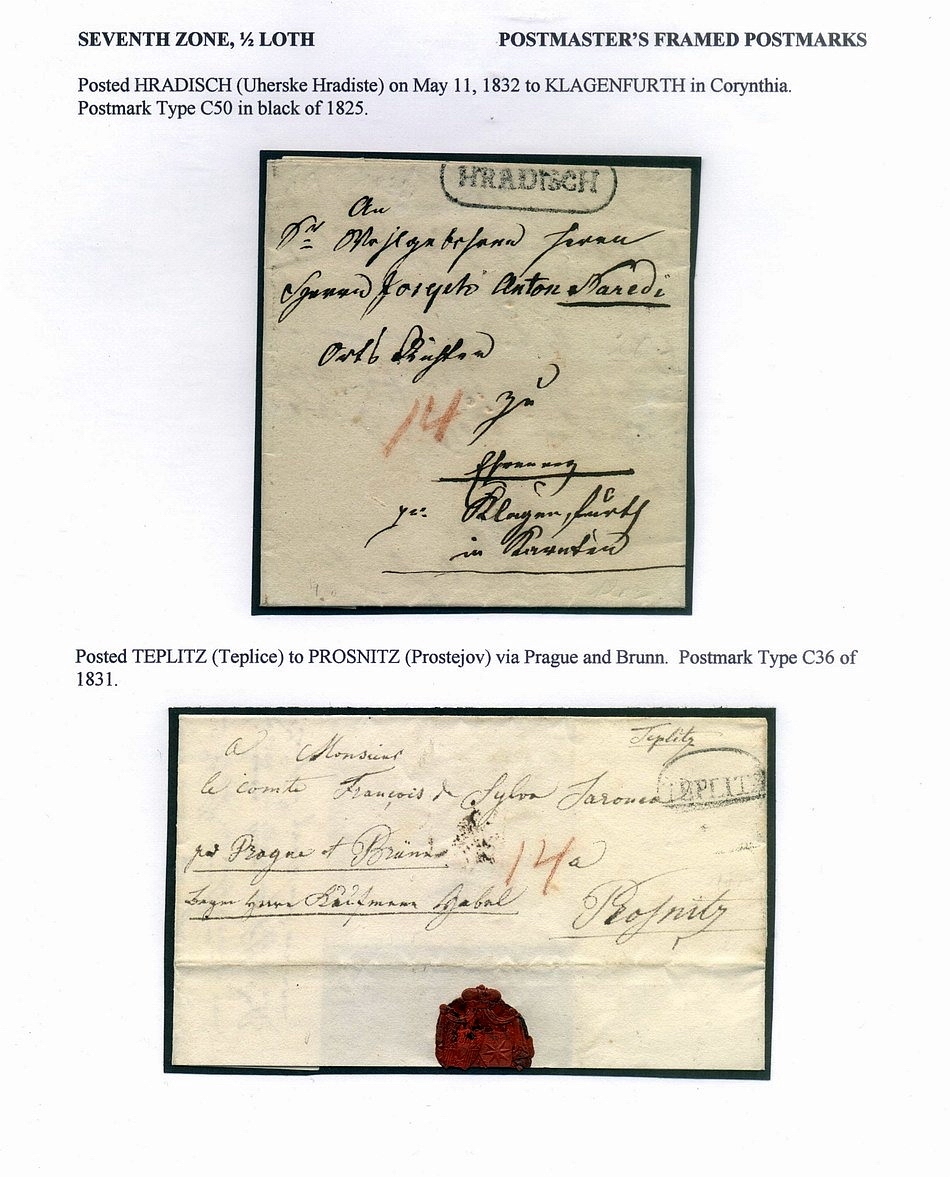 SEVENTH ZONE, ½ LOTH
POSTMASTER'S FRAMED POSTMARKS
Posted HRADISCH (Uherske Hradiste) on May 11, 1832 to KLAGENFURTH in Corynthia.
Postmark Type C50 in black of 1825.
HRADISCH
An
Sr Wohlgebohrn Herrn
Herrn Joseph Anton Naredi
Orts Richter
14
zu
pr Klagenfurth
in Karnten
Posted TEPLITZ (Teplice) to PROSNITZ (Prostejov) via Prague and Brunn. Postmark Type C36 of
1831.
Teplitz
TEPLITZ
a Monsieur
le comte François de Sylva Tarouca
par Prague et Brünn
14 a
Herrn Kaufmann Habel
Prosnitz